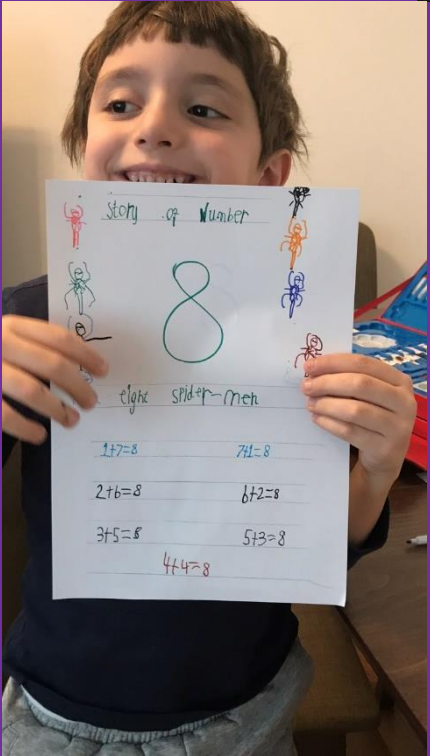 Story of Number
8
eight spider-men
1+7=8 7+1=8
2+6=8 6+2=8
3+5=8 5+3=8
4+4=8